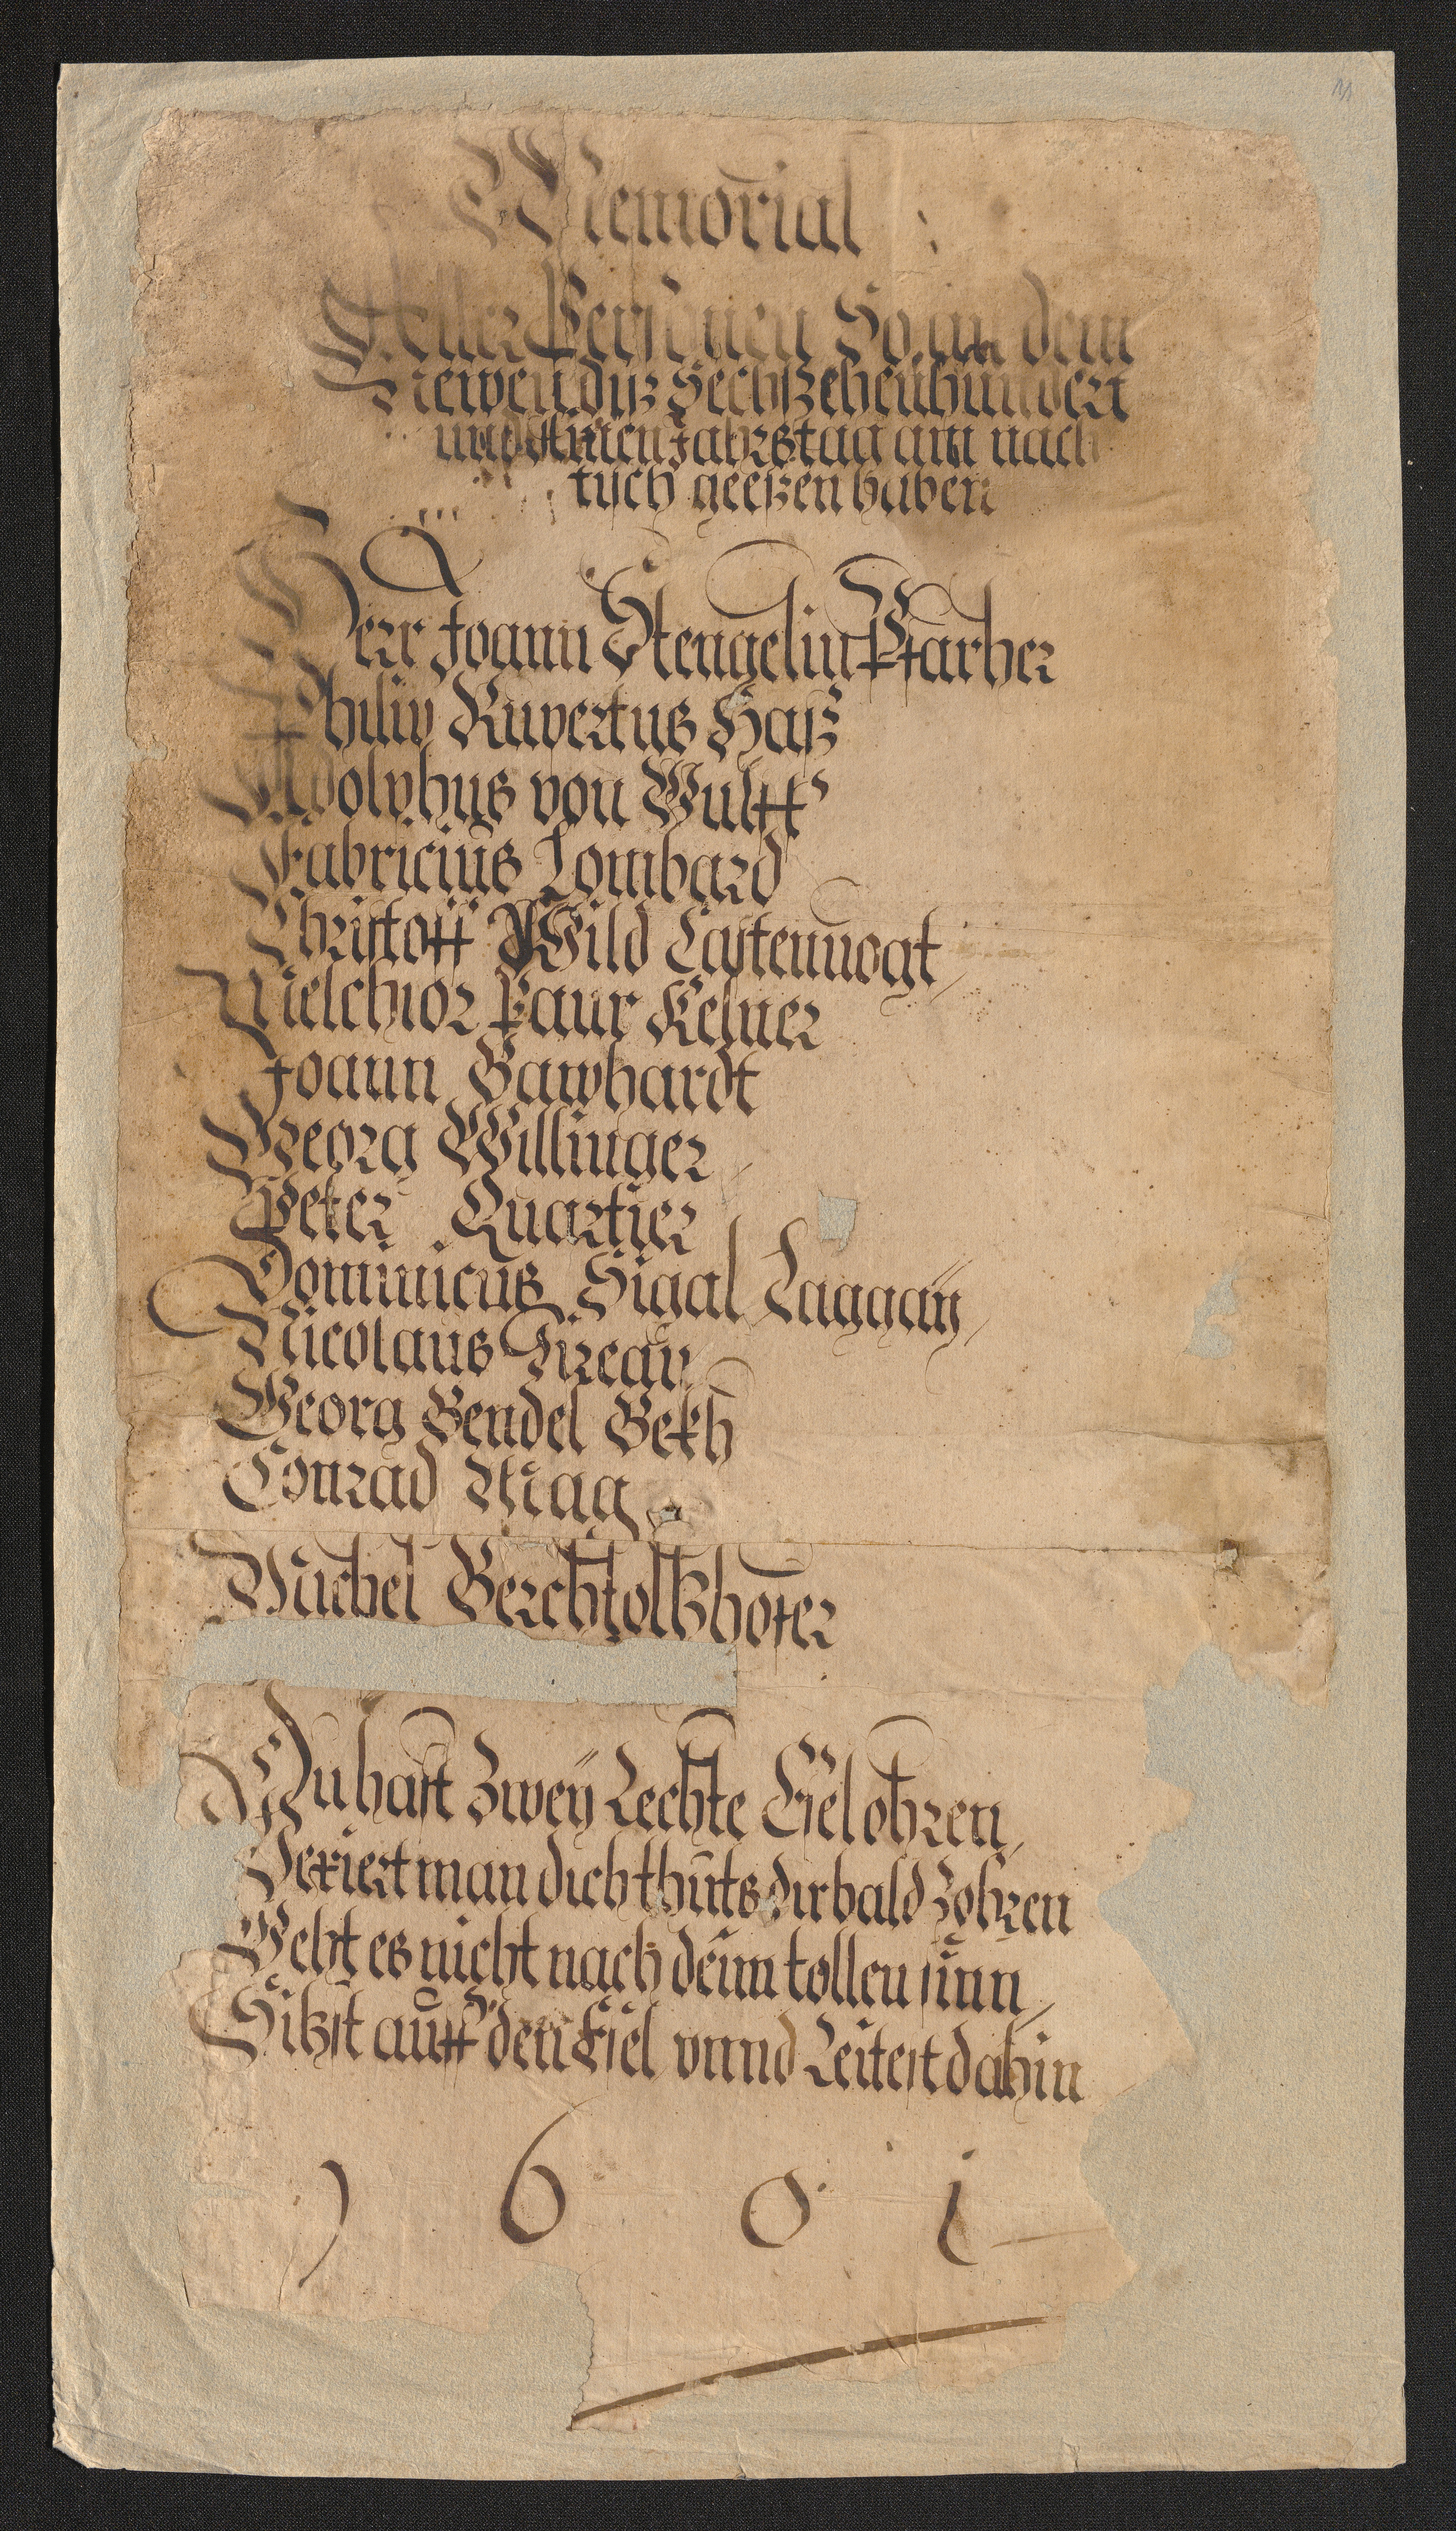 Memorial
Aller Personen So an dem
Newen diß Sechßzehenhundert
und Ainen Jahrstag am nach
tisch geeßen haben
Herr Joann Stengelin Pfarher
Philip Rupertus Haß
Adolphus von Wulff
Fabricius Lombard
Christoff Wild Castenuogt
Melchior Paur Kelner
Joann Gawhardt
Georg Willinger
Peter Quartier
Dominicus Sigal Laggaÿ
Nicolaus
Georg Bendel Bekh
Conrad Mag
Michel Berchtoltzhofer
Du hast Zweÿ Rechte Esel ohren
Vexiert man dich thuts dir bald Zohren
Geht es nicht nach deim tollen sinn
Sitzst auff den Esel vnnd Reitest dahin
1601